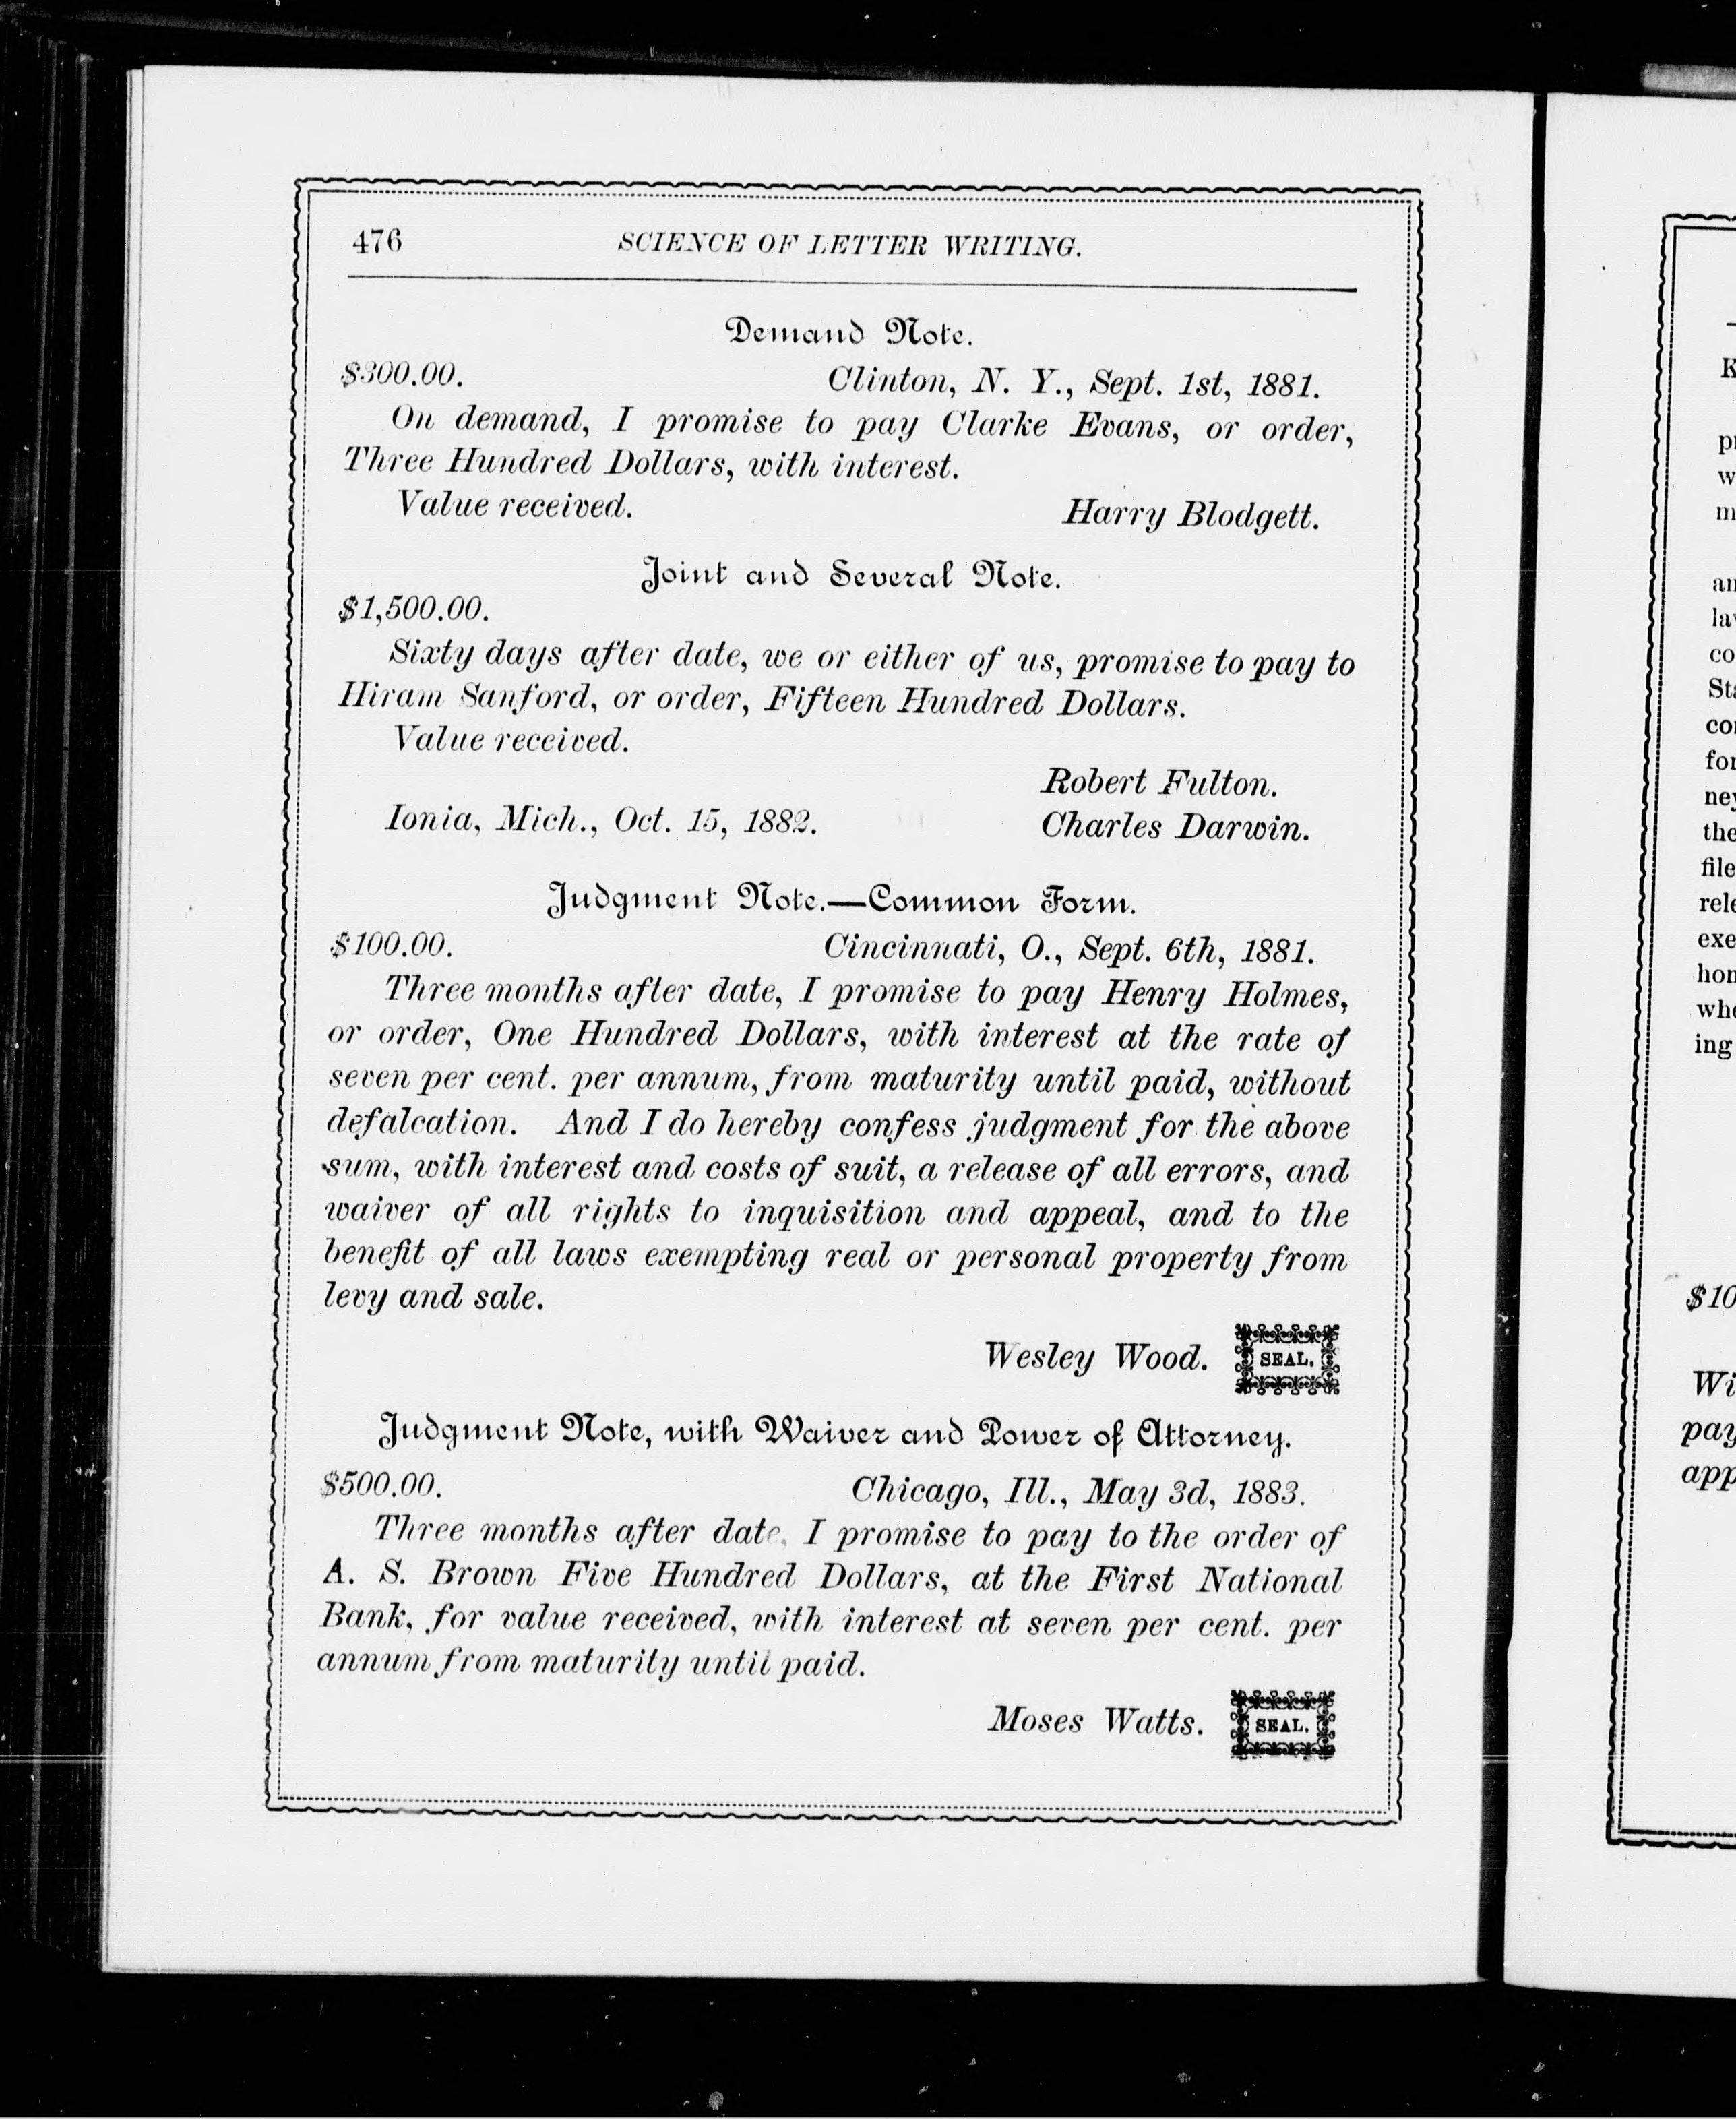 476 SCIENCE OF LETTER WRITING.
Demand Note.
$300.00. Clinton, N. Y., Sept. 1st, 1881.
On demand, I promise to pay Clarke Evans, or order,
Three Hundred Dollars, with interest.
Value received. Harry Blodgett.
Joint and Several Note.
$1,500.00.
Sixty days after date, we or either of us, promise to pay to
Hiram Sanford, or order, Fifteen Hundred Dollars.
Value received.
Robert Fulton.
Ionia, Mich., Oct. 15, 1882. Charles Darwin.
Judgment Note.—Common Form.
$100.00. Cincinnati, O., Sept. 6th, 1881.
Three months after date, I promise to pay Henry Holmes,
or order, One Hundred Dollars, with interest at the rate of
seven per cent. per annum, from maturity until paid, without
defalcation. And I do hereby confess judgment for the above
sum, with interest and costs of suit, a release of all errors, and
waiver of all rights to inquisition and appeal, and to the
benefit of all laws exempting real or personal property from
levy and sale.
Wesley Wood. SEAL.
Judgment Note, with Waiver and Power of Attorney.
$500.00. Chicago, Ill., May 3d, 1883.
Three months after date, I promise to pay to the order of
A. S. Brown Five Hundred Dollars, at the First National
Bank, for value received, with interest at seven per cent. per
annum from maturity until paid.
Moses Watts. SEAL.